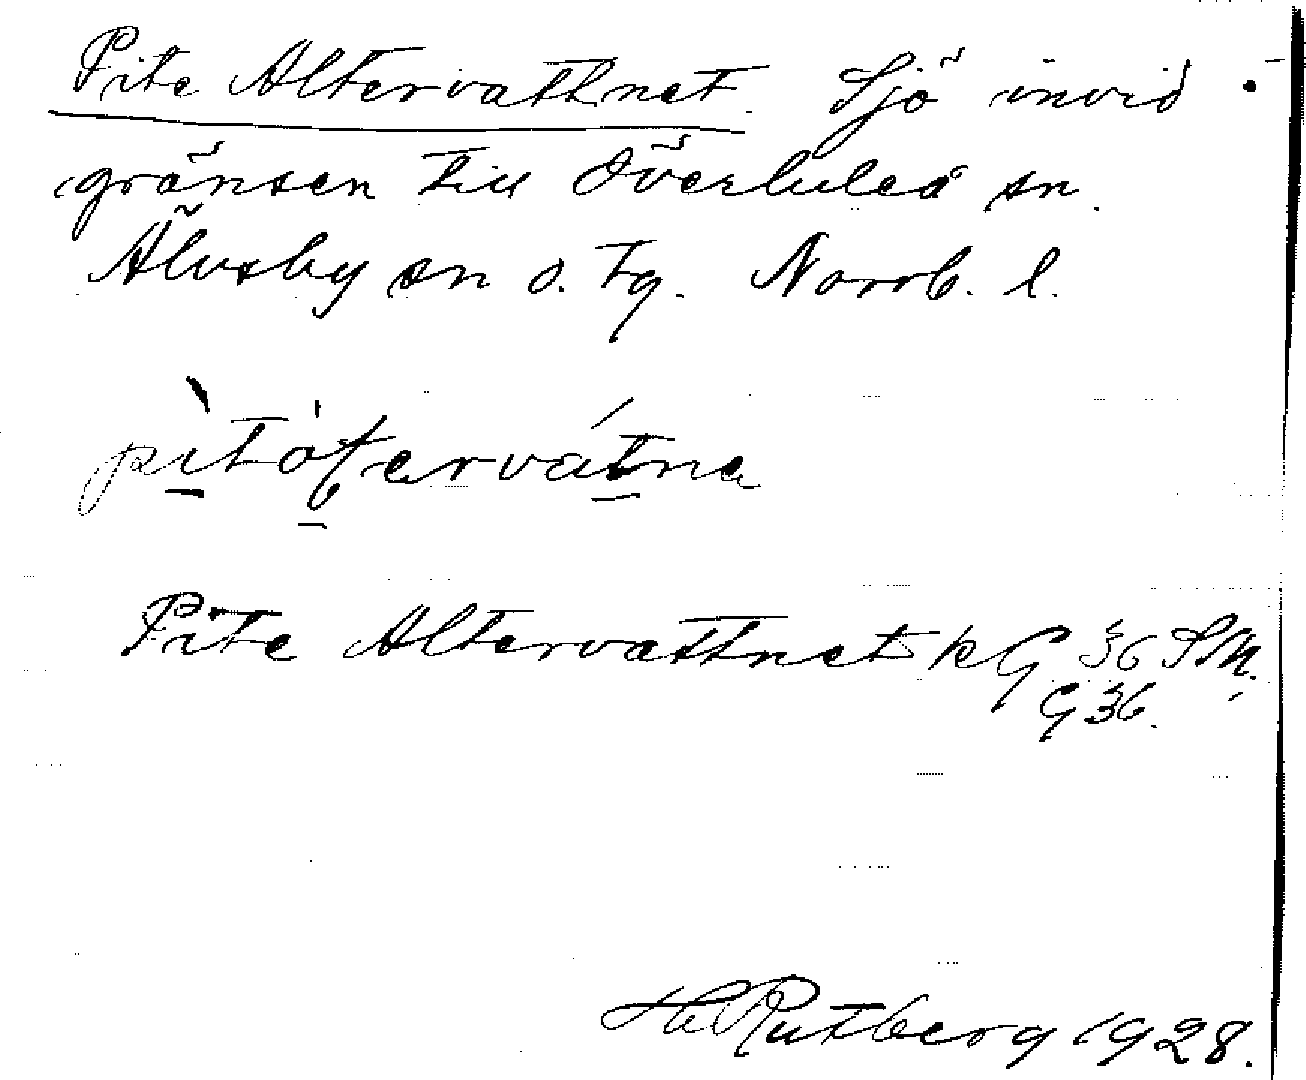 Pite Altervattnet. Sjö invid
gränsen till Överluleå sn.
Älvsby sn o. tg. Norrb. l.
Pite Altervattnet k G 36 SM.
G 36.
Rutberg 1928.